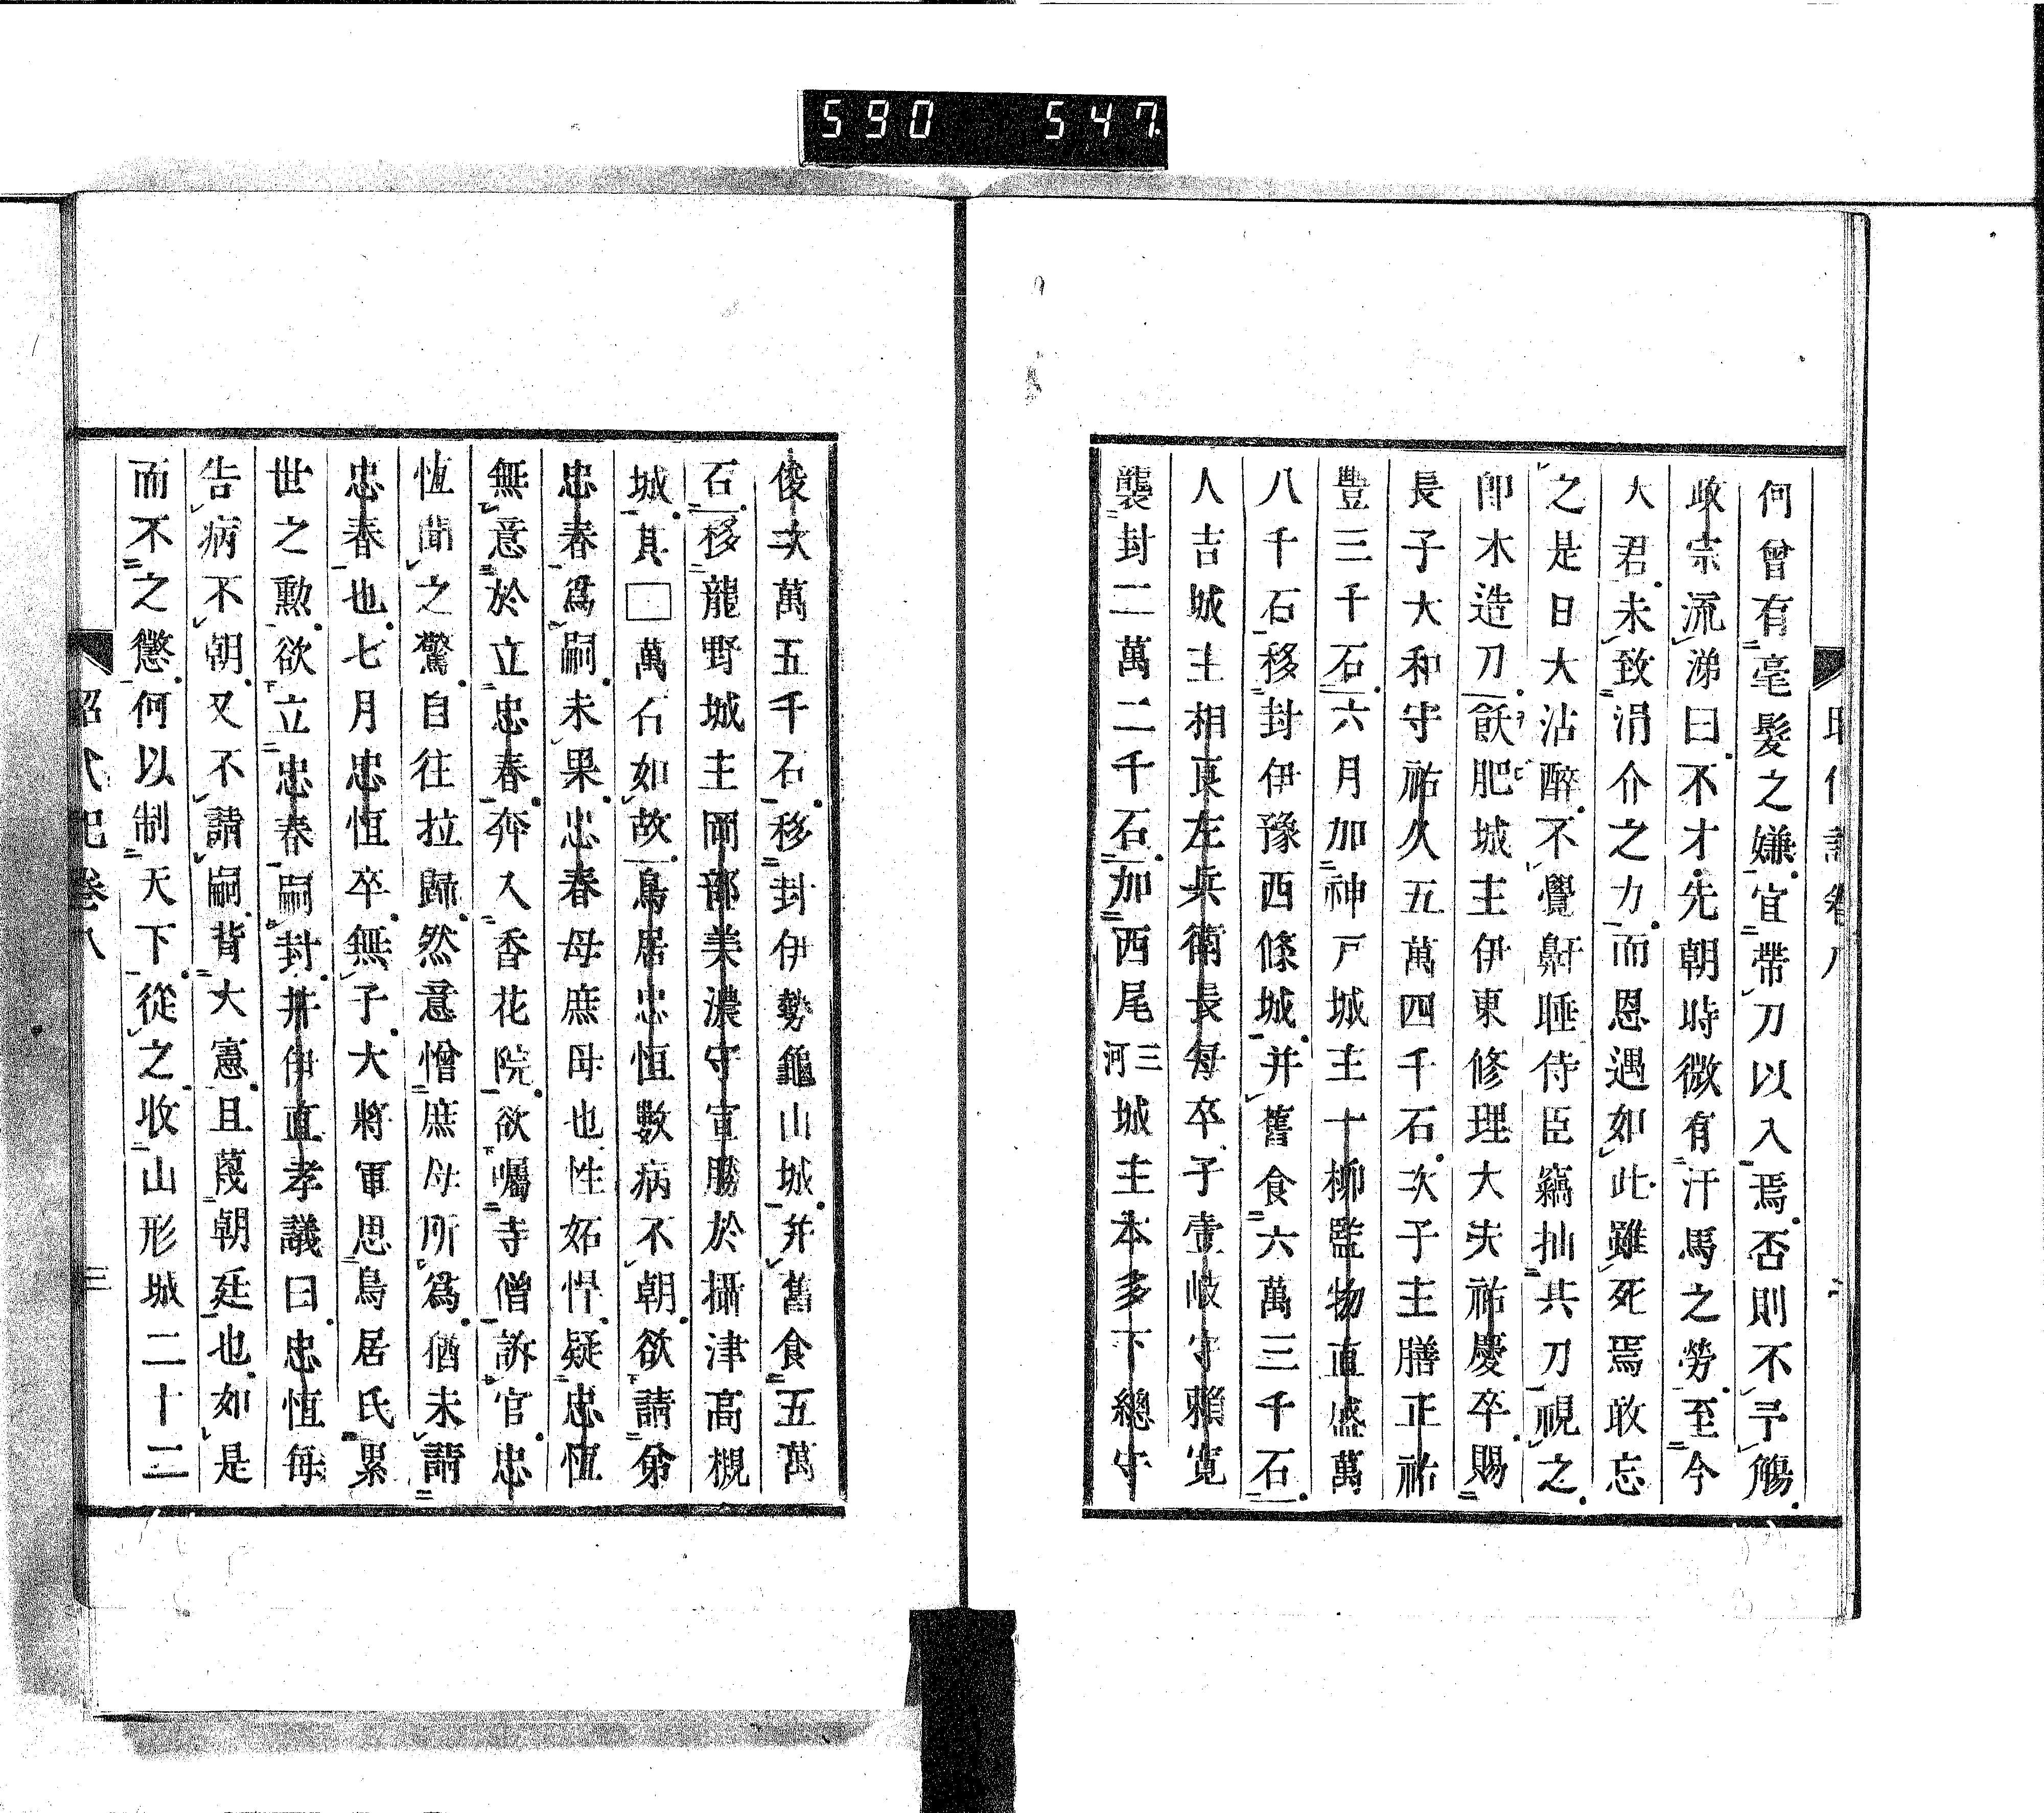 590 547
何曾有毫髮之嫌宜帶刀以入焉否則不予觴
政宗流涕曰不才先朝時微有汗馬之勞至今
大君未致涓介之力而恩遇如此雖死焉敢忘
之是日大沾醉不覺鼾睡侍臣竊抽共刀視之
卽木造刀飫肥城主伊東修理大夫祐慶卒賜
長子大和守祐久五萬四千石次子主膳正祐
豐三千石六月加神戸城主十柳監物直盛萬
八千石移封伊豫西條城并舊食六萬三千石
人吉城主相良左兵衛長每卒子壹岐守賴寛
襲封二萬二千石加西尾三河城主本多下總守
俊次萬五千石移封伊勢龜山城并舊食五萬
石移龍野城主岡部美濃守宣勝於攝津高槻
城其□萬石如故鳥居忠恆數病不朝欲請弟
忠春爲嗣未果忠春母庶母也性妬悍疑忠恆
無意於立忠春奔入香花院欲囑寺僧訴官忠
恆聞之驚自往拉歸然意憎庶母所爲猶未請
忠春也七月忠恆卒無子大將軍思鳥居氏累
世之勲欲立忠春嗣封井伊直孝議曰忠恆每
告病不朝又不請嗣背大憲且蔑朝廷也如是
而不之懲何以制天下從之收山形城二十二
昭代記卷八 三